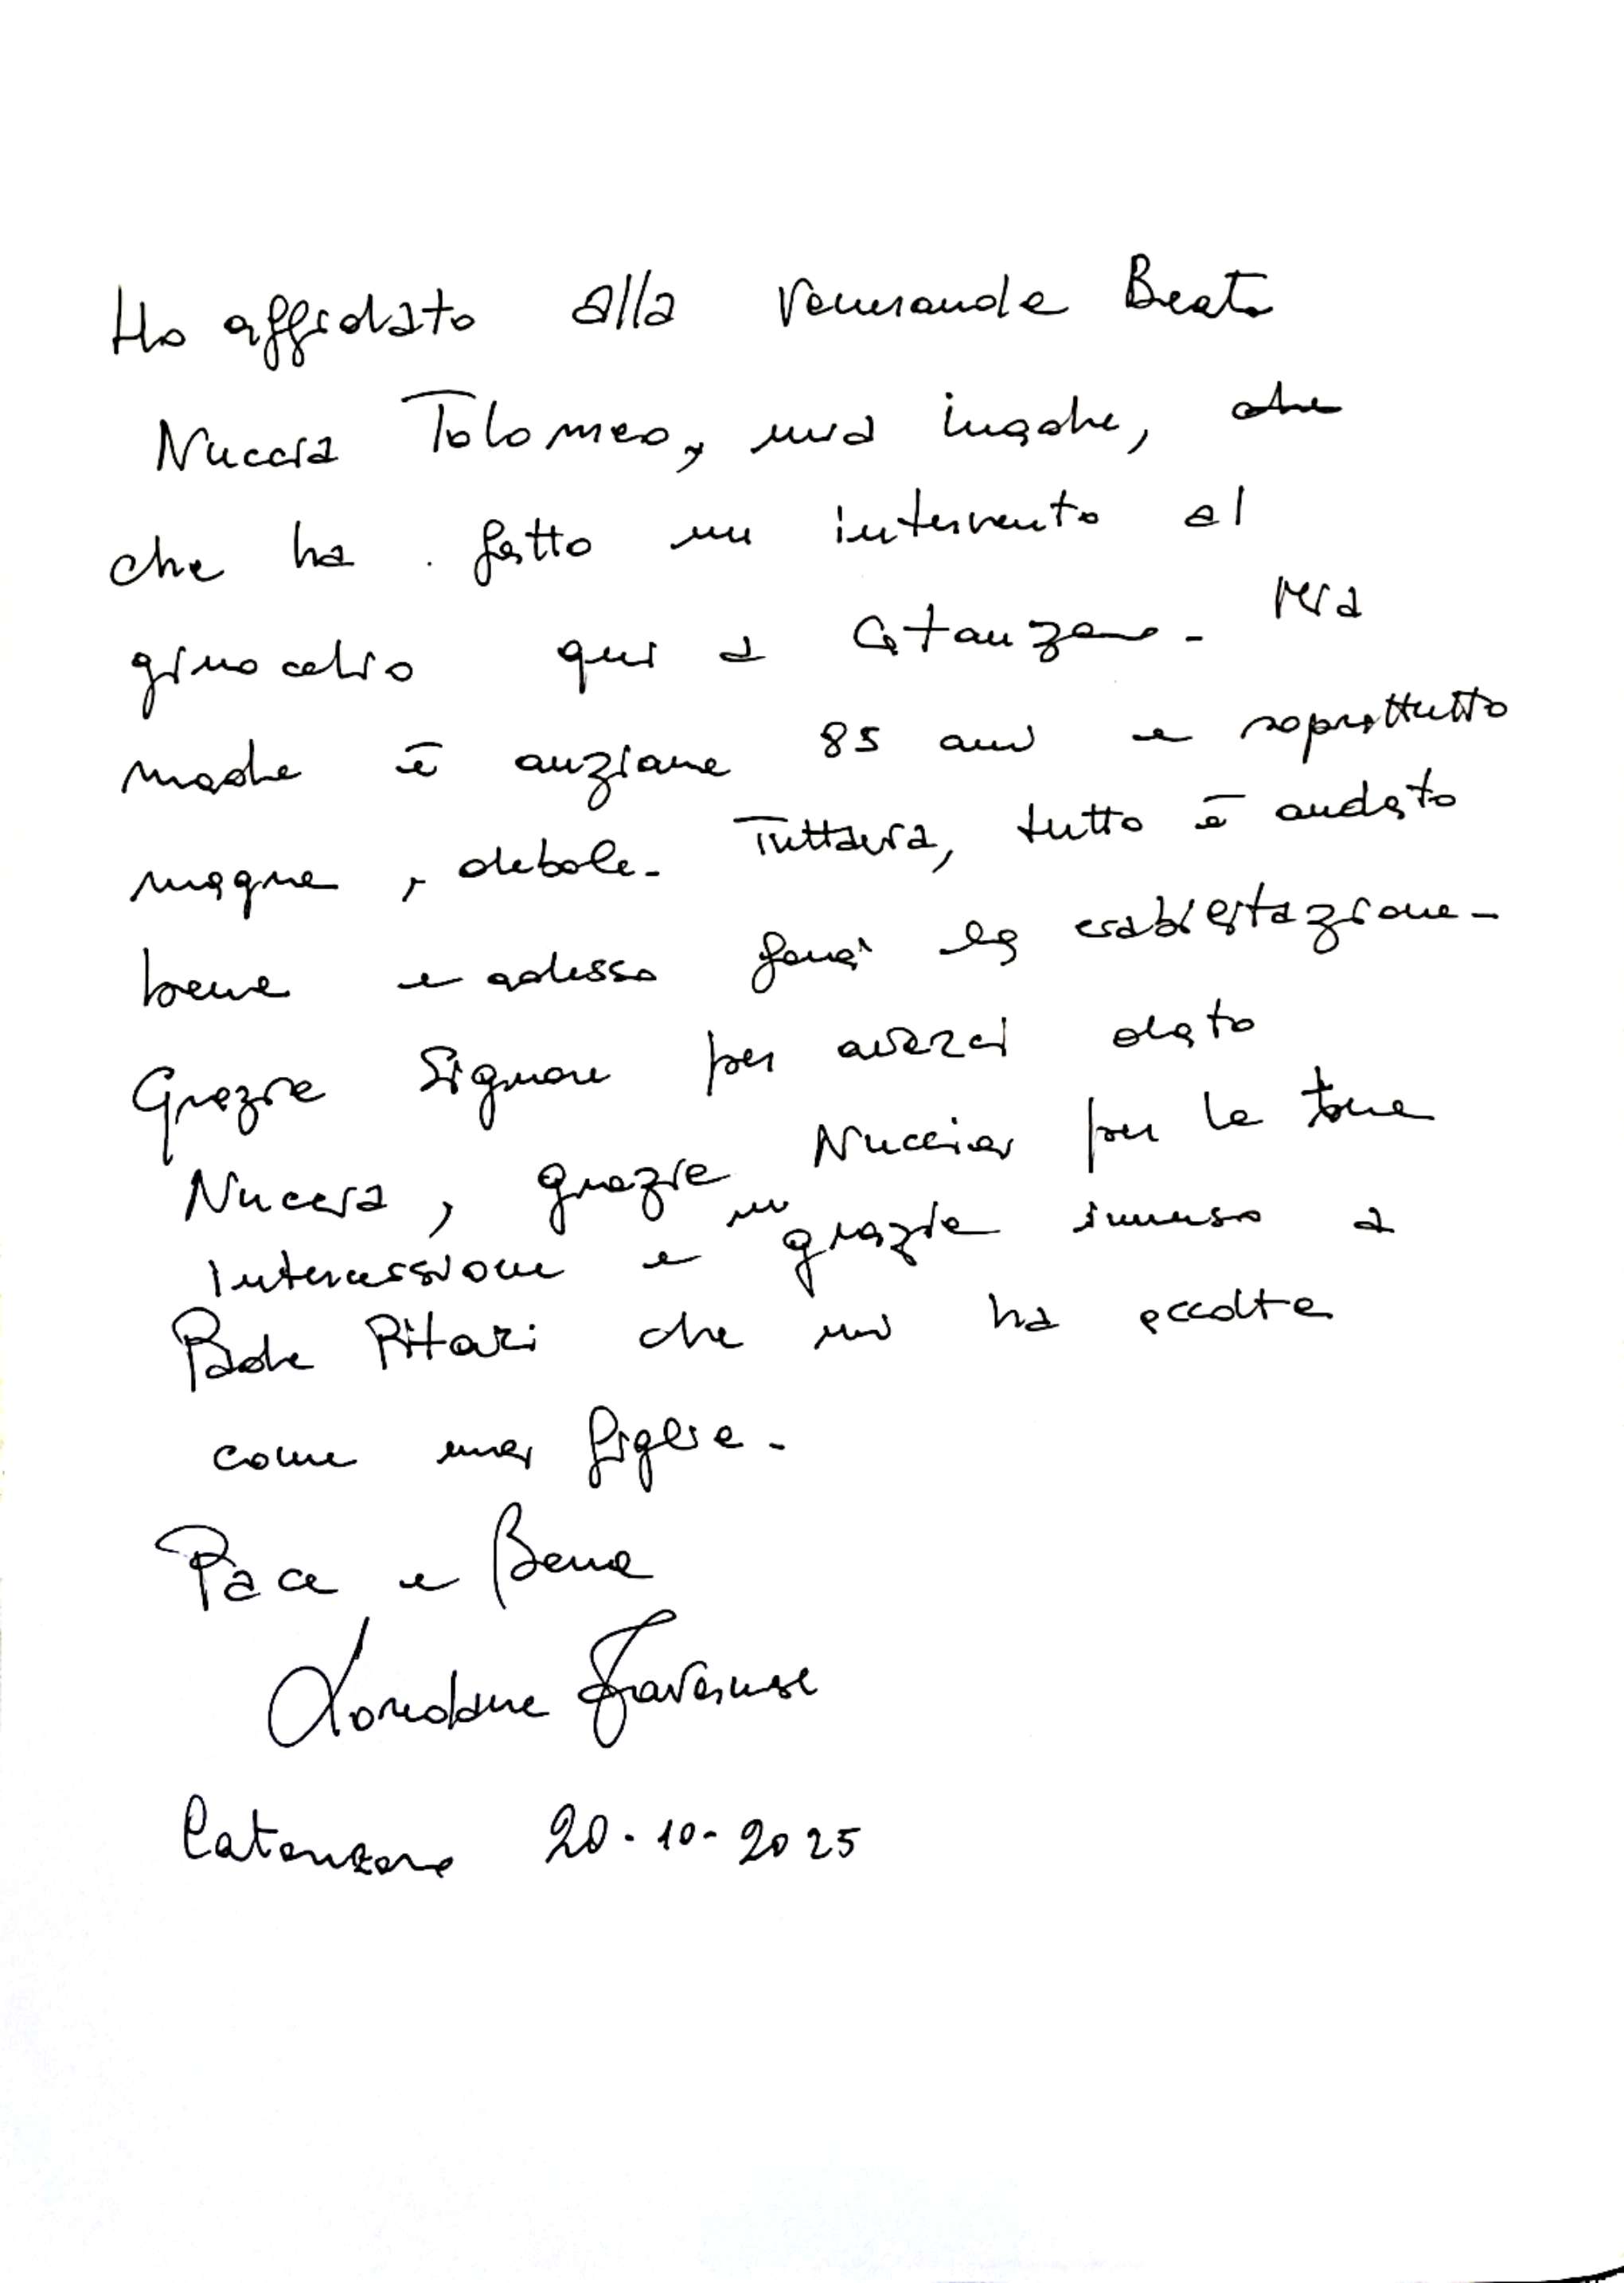 Ho affidato alla Veneranda Beata
Nuccia Tolomeo, mia madre, che
che ha fatto un intervento al
ginocchio qui a Catanzaro - Mia
madre è anziana 85 anni e soprattutto
magra, debole - Tuttavia, tutto è andato
bene e adesso farà la riabilitazione -
Grazie Signore per averci dato
Nuccia, grazie Nuccia per la tua
intercessione e un grazie immenso a
Padre Pitari che mi ha accolta
come una figlia -
Pace e Bene
Loredana
Catanzaro 20-10-2025